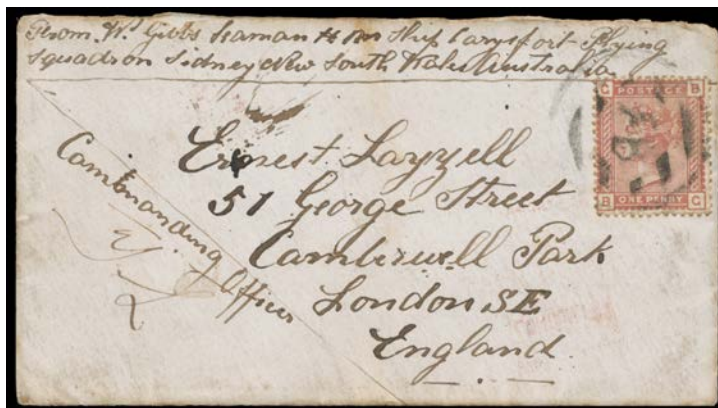 From Wm Gibbs Seaman H M Ship Carysfort Flying
Squadron Sidney New South Wales Australia
Commanding
Officer
Ernest Layzell
51 George Street
Camberwell Park
London SE
England
G POSTAGE B
B ONE PENNY G